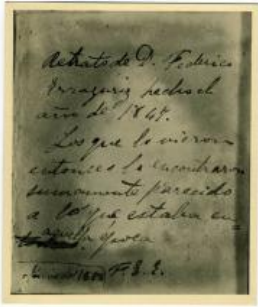 Retrato de D. Federico
Errazuriz hecho el
año de 1847.
Los que lo vieron
entonces lo encontraron
sumamente parecido
a lo que estaba en
aquella época
F. E. E.